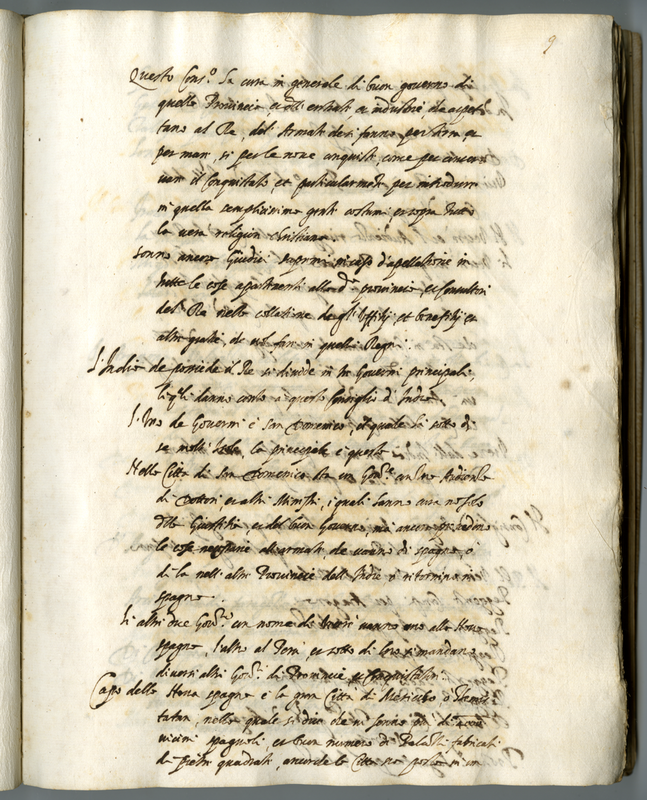 9
Questo Cons.o ha cura in generale di buon governo di
quelle Provincie, et dell' entrate et industrie che aspet
tano al Re, dell' Armate che si fanno per terra et
per mare, si per le nove conquiste, come per
il Conquistato, et particularmente per introdurre
in quella semplicissima gente costumi, et sopra tutto
la vera religion Christiana.
Sonno ancora Giudici supremi in caso d'apellatione in
tutte le cose apartinenti alla d.a provincia, et Consultori
del Re nella collatione degl' Uffitij et benefitij et
altre gratie, che suol fare in quelli Regni.
L'India che possiede il Re si divide in tre Governi principali,
li q.li danno conto a questo Consiglio d'India.
L'uno de Governi è San Domenico, il quale ha sotto di
se molte Isole, la principale è questa.
Nella Città di San Domenico sta un Gov.re con una Audientia
di Dottori, et altri Ministri, i quali hanno cura non solo
della Giustitia et del buon Governo, ma ancora provedono
le cose necessarie all' armate, che vanno di spagna, o
di la nell' altre Provincie dell' Indie o ritornino in
spagna.
Li altri due Gov.ri con nome di Vicere vanno uno alla Nova
spagna, l'altro al Perù, et sotto di loro si mandano
diversi altri Gov.ri di Provincie et Conquistatori.
Capo della Nova spagna è la gran Città di Messico o Temis
titan, nella quale si dice che vi sonno più di
vicini spagnoli, et buon numero di Palazzi fabricati
di pietre quadrate, ancorche la Città sia posta in un